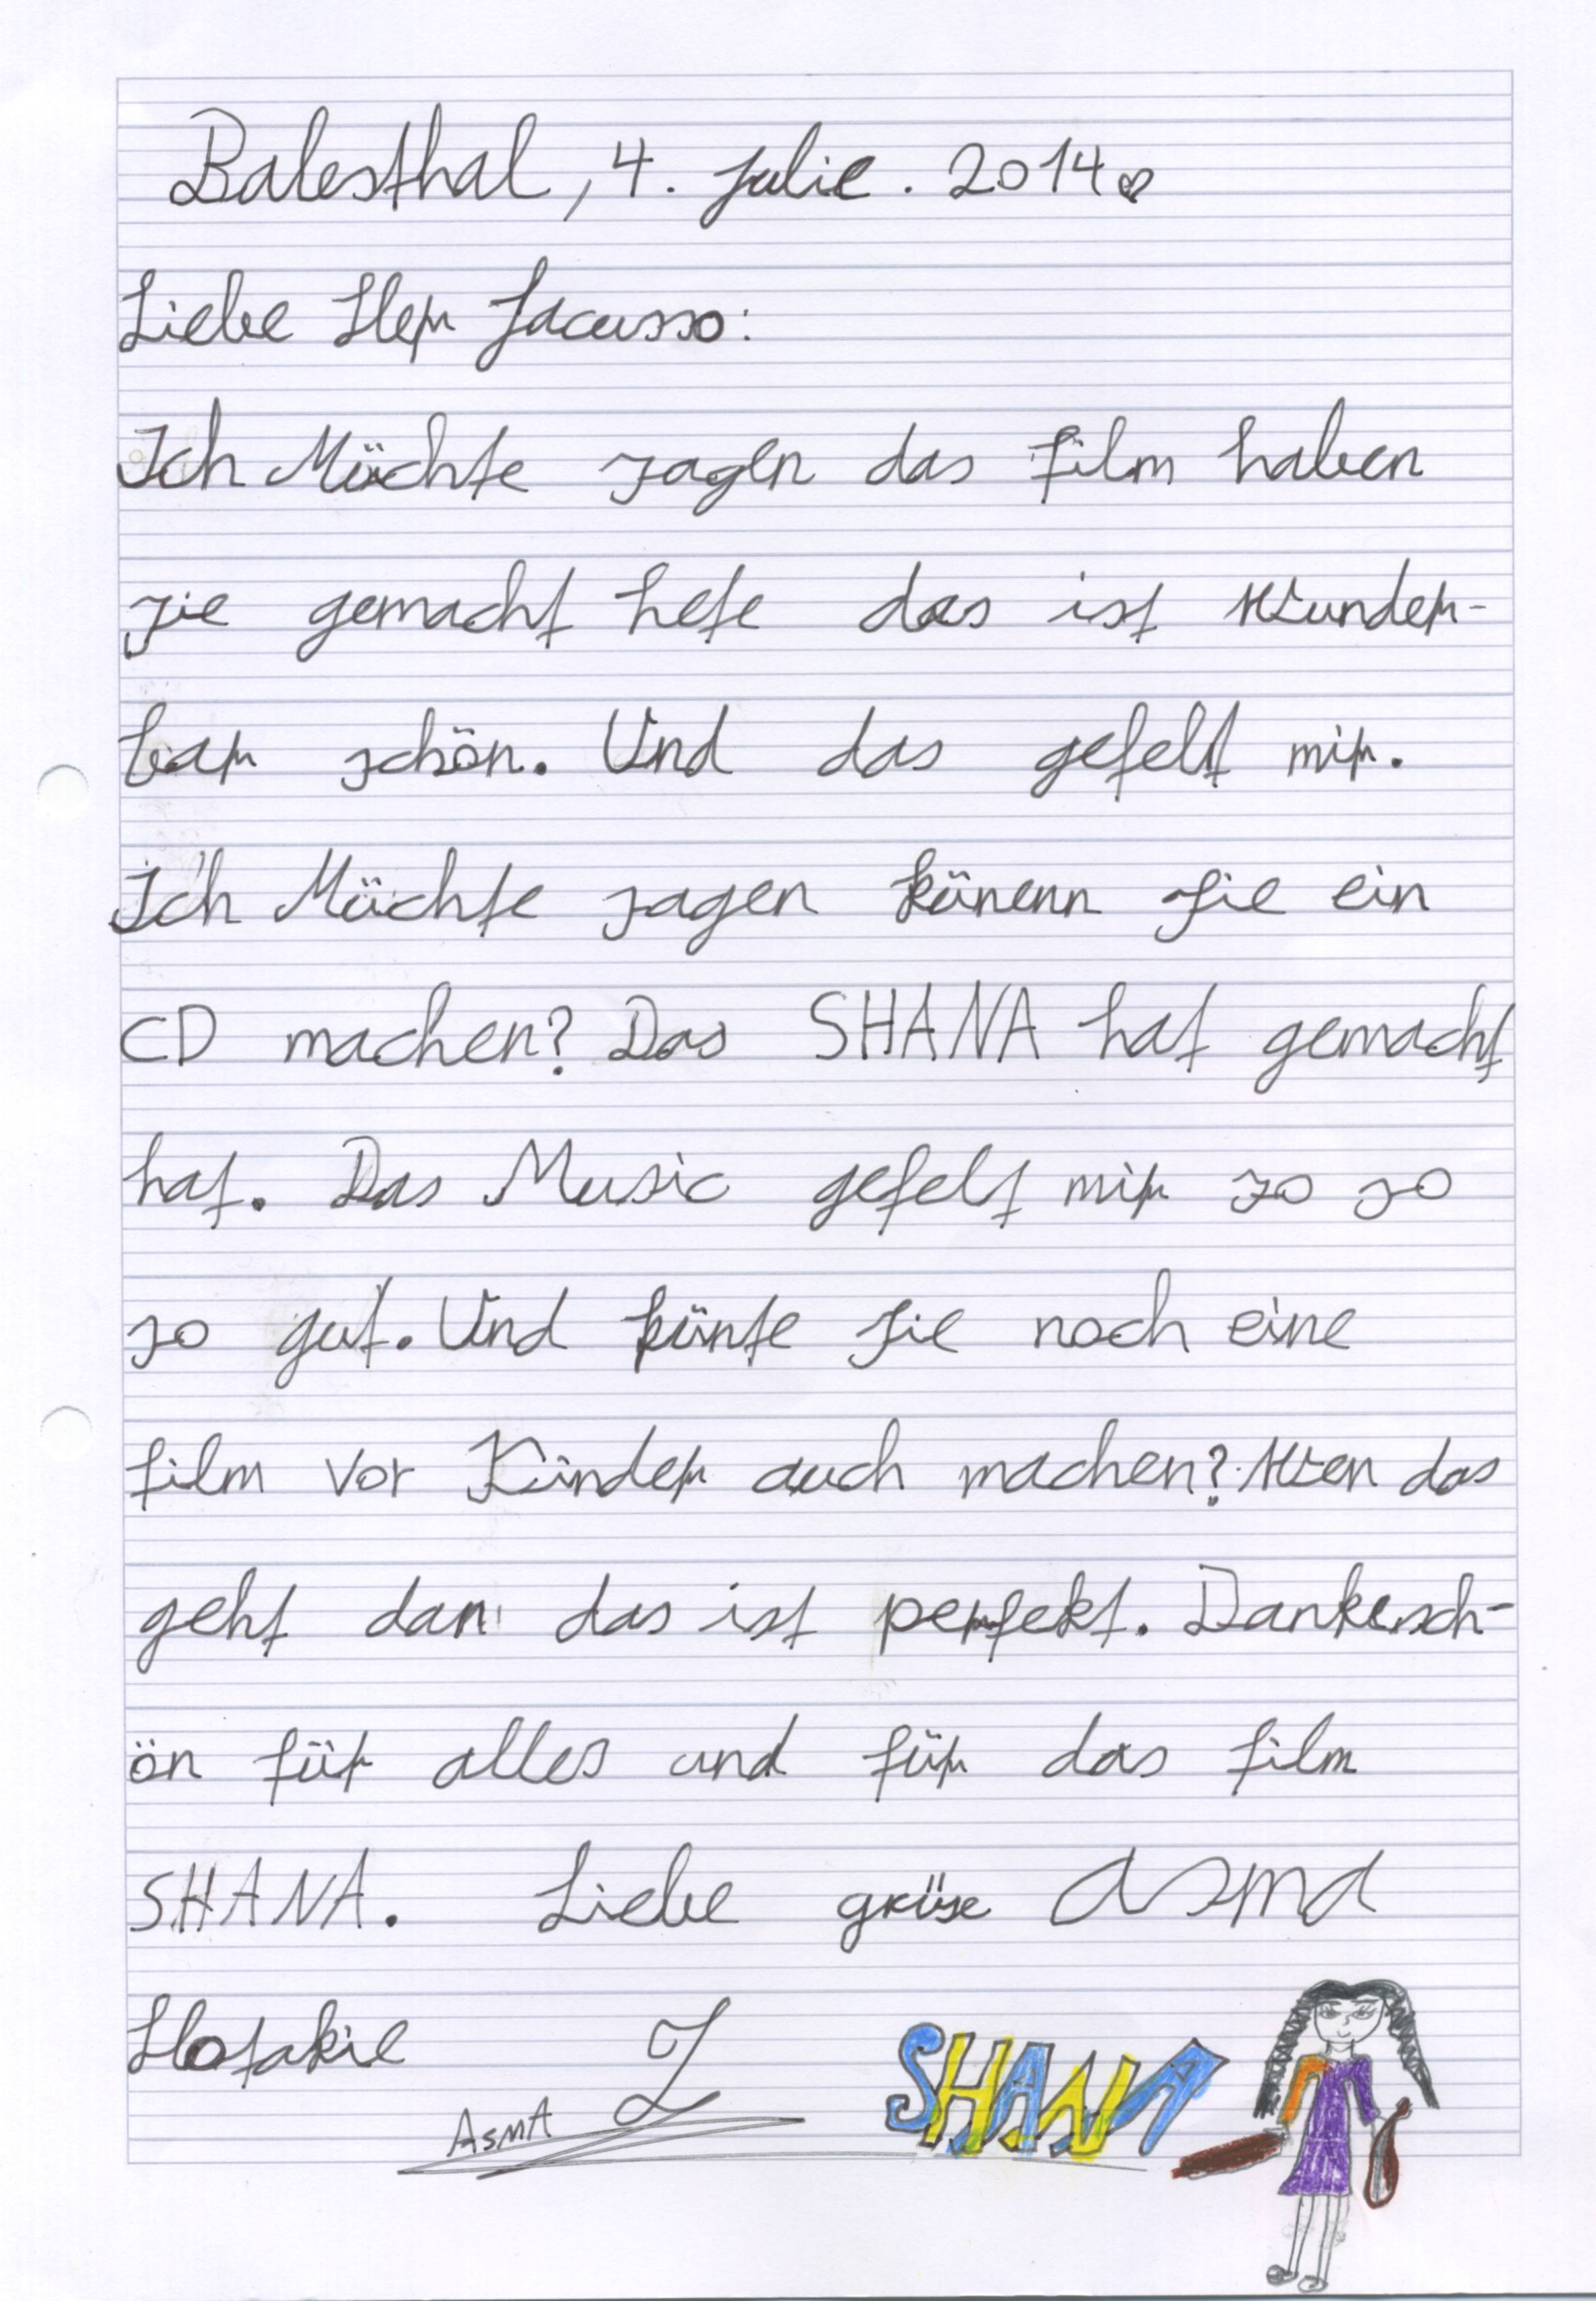 Balesthal, 4. Julie. 2014
Liebe Herr Jacusso:
Ich Möchte sagen das film haben
sie gemacht hete das ist wunder-
bar schön. Und das gefelt mir.
Ich Möchte sagen könenn Sie ein
CD machen? Das SHANA hat gemacht
hat. Das Music gefelt mir so so
so gut. Und könte Sie noch eine
film vor Kinder auch machen? Wen das
geht dan das ist perfekt. Dankesch-
ön für alles und für das film
SHANA. Liebe grüse Asma
Hotakie
AsmA
SHANA